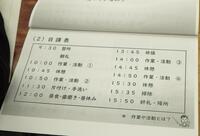 (2) 日課表
9:30 登所
朝礼
10:00 作業・活動 ①
10:45 休憩
10:50 作業・活動 ②
11:30 片付け・手洗い
12:00 昼食・歯磨き・昼休み
13:45 休憩
14:00 作業・活動 ③
14:45 休憩
14:50 作業・活動 ④
15:35 休憩
15:50 終礼・帰所
※ 作業や活動とは?